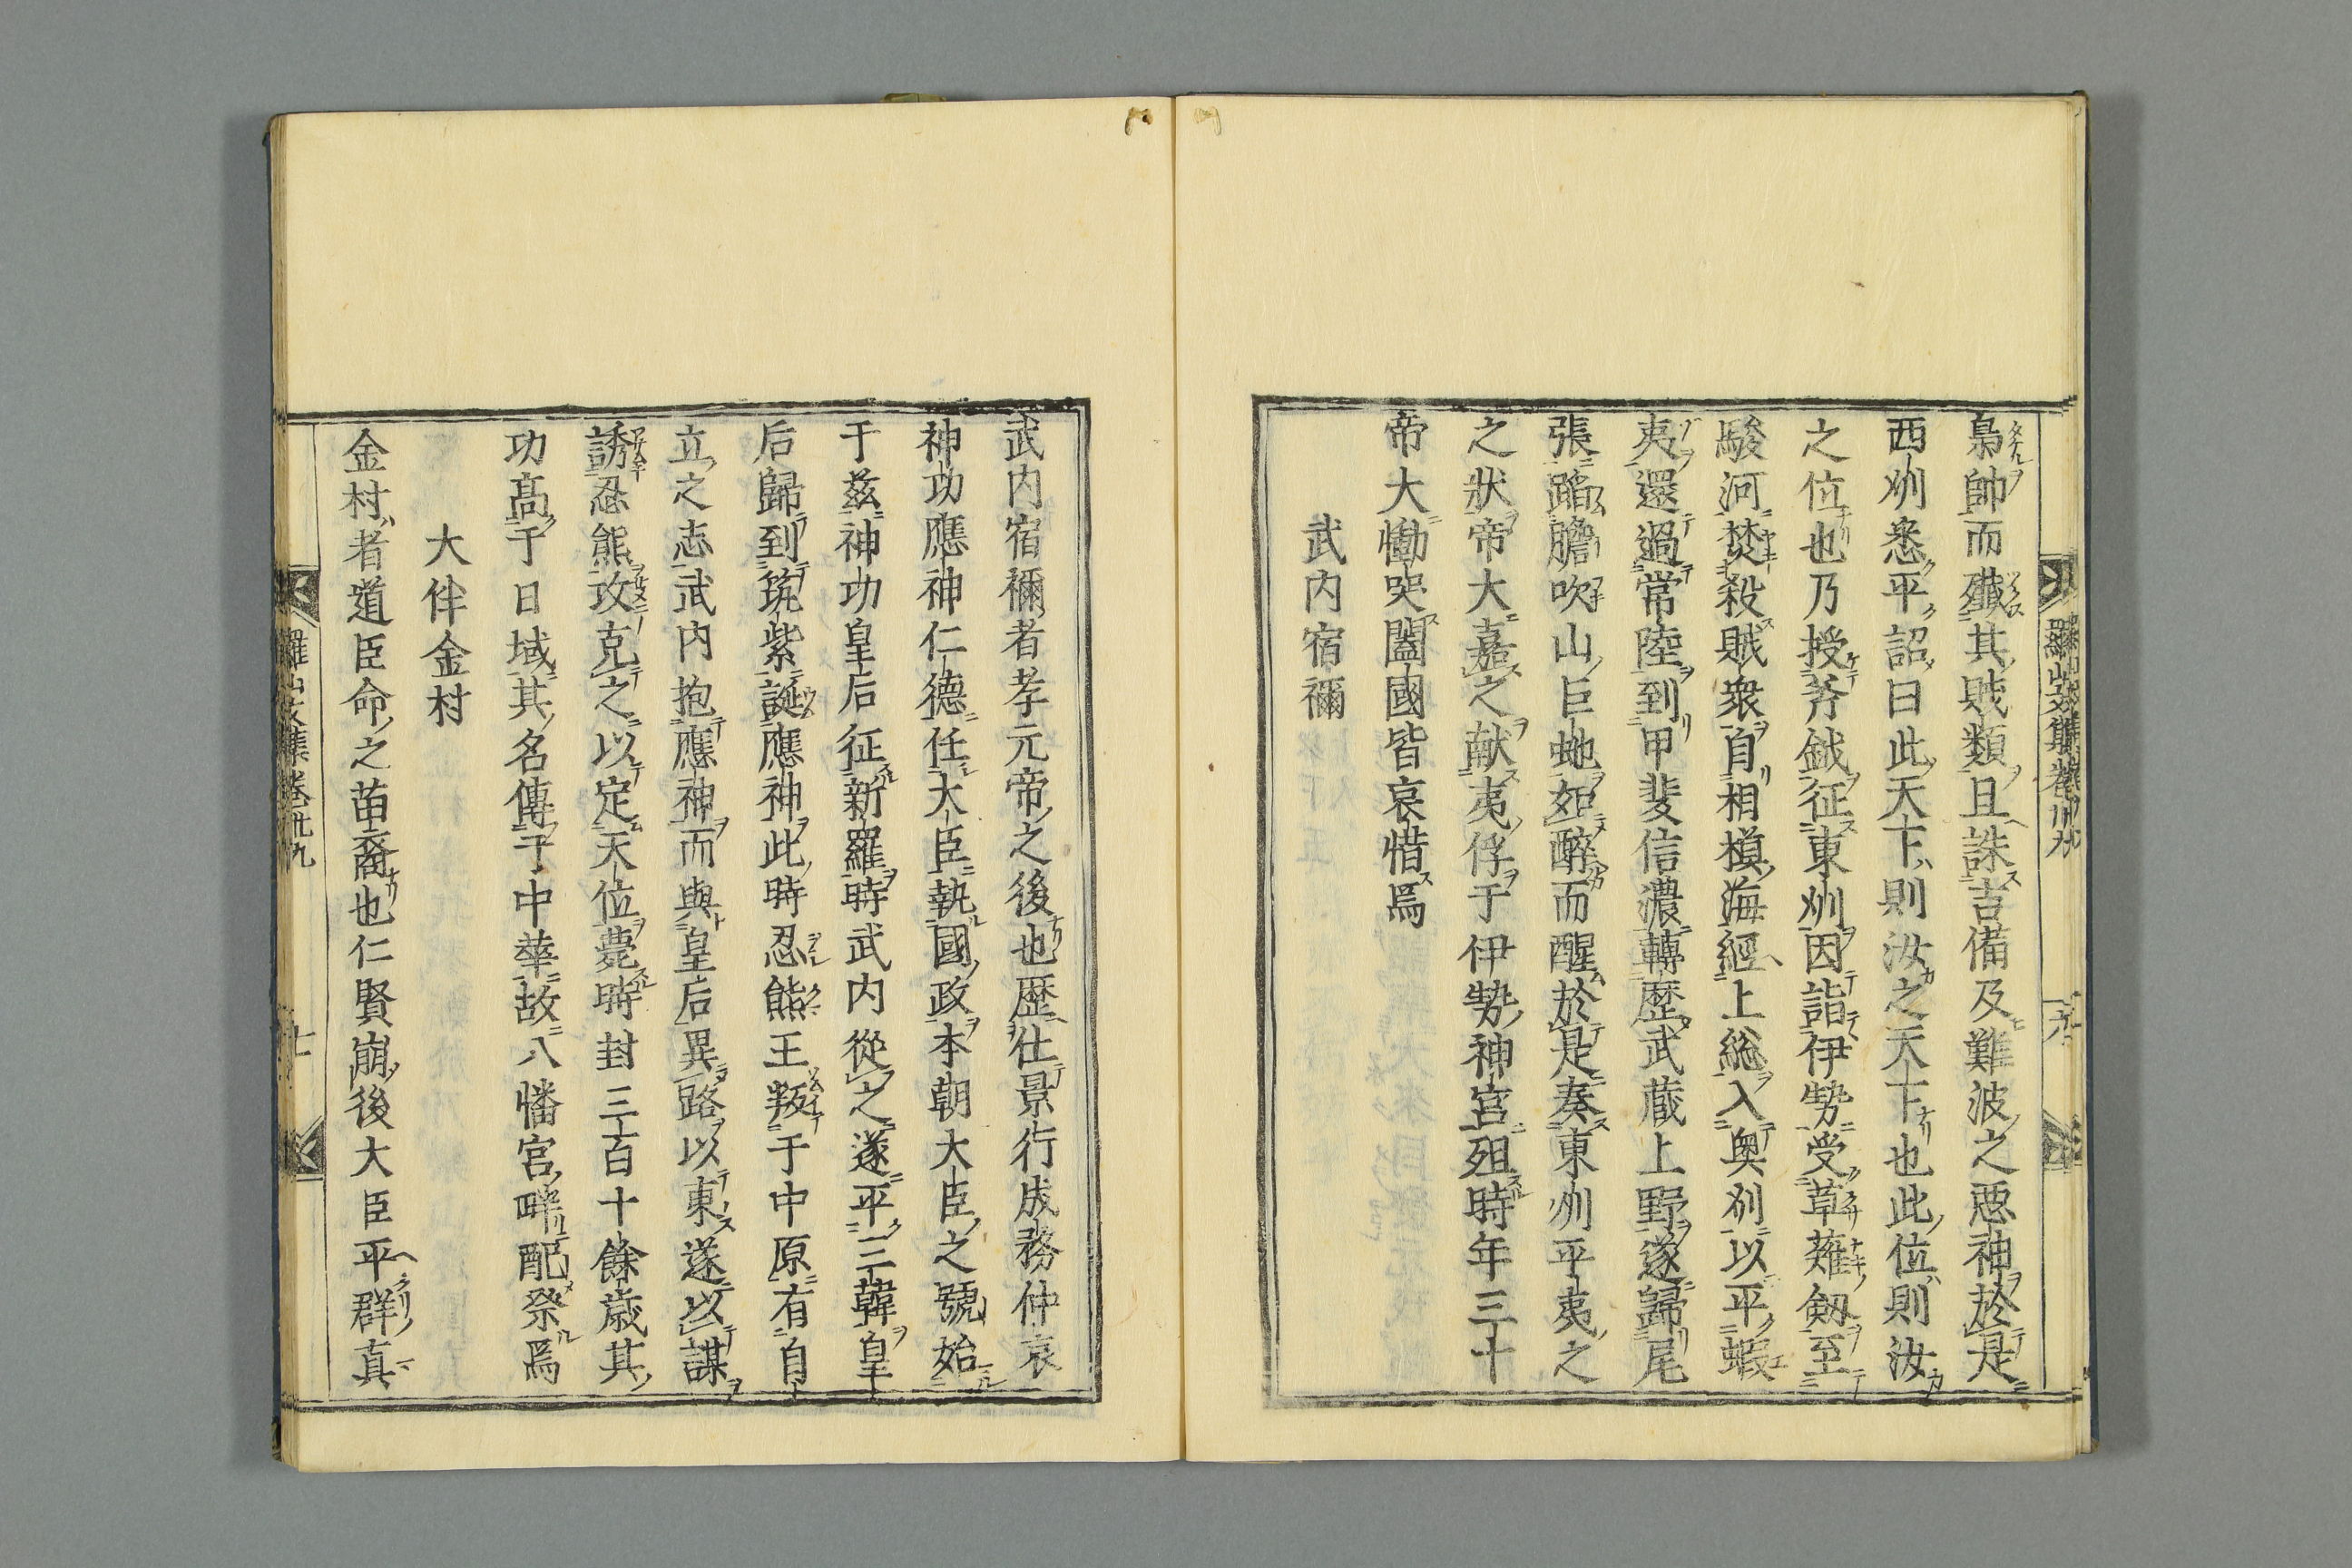 梟帥而殲其賊類且誅吉備及難波之惡神於是
西州悉平詔曰此天下則汝之天下也此位則汝
之位也乃授斧鉞征東州因詣伊勢受草薙劔至
駿河焚殺賊衆自相模海經上総入奥州以平蝦
夷還過常陸到甲斐信濃轉歴武蔵上野遂歸尾
張蹈膽吹山巨虵如醉而醒於是奏東州平夷之
之狀帝大嘉之献夷俘于伊勢神宮殂時年三十
帝大慟哭闔國皆哀惜焉
武内宿禰
武内宿禰者孝元帝之後也歴仕景行成務仲哀
神功應神仁德任大臣執國政本朝大臣之號始
于兹神功皇后征新羅時武内從之遂平三韓皇
后歸到筑紫誕應神此時忍熊王叛于中原有自
立之志武内抱應神而與皇后異路以東遂以謀
誘忍熊攻克之以定天位薨時封三百十餘歳其
功髙于日域其名傳于中華故八幡宮畔配祭焉
大伴金村
金村者道臣命之苗裔也仁賢崩後大臣平群真
羅山文集卷卅九